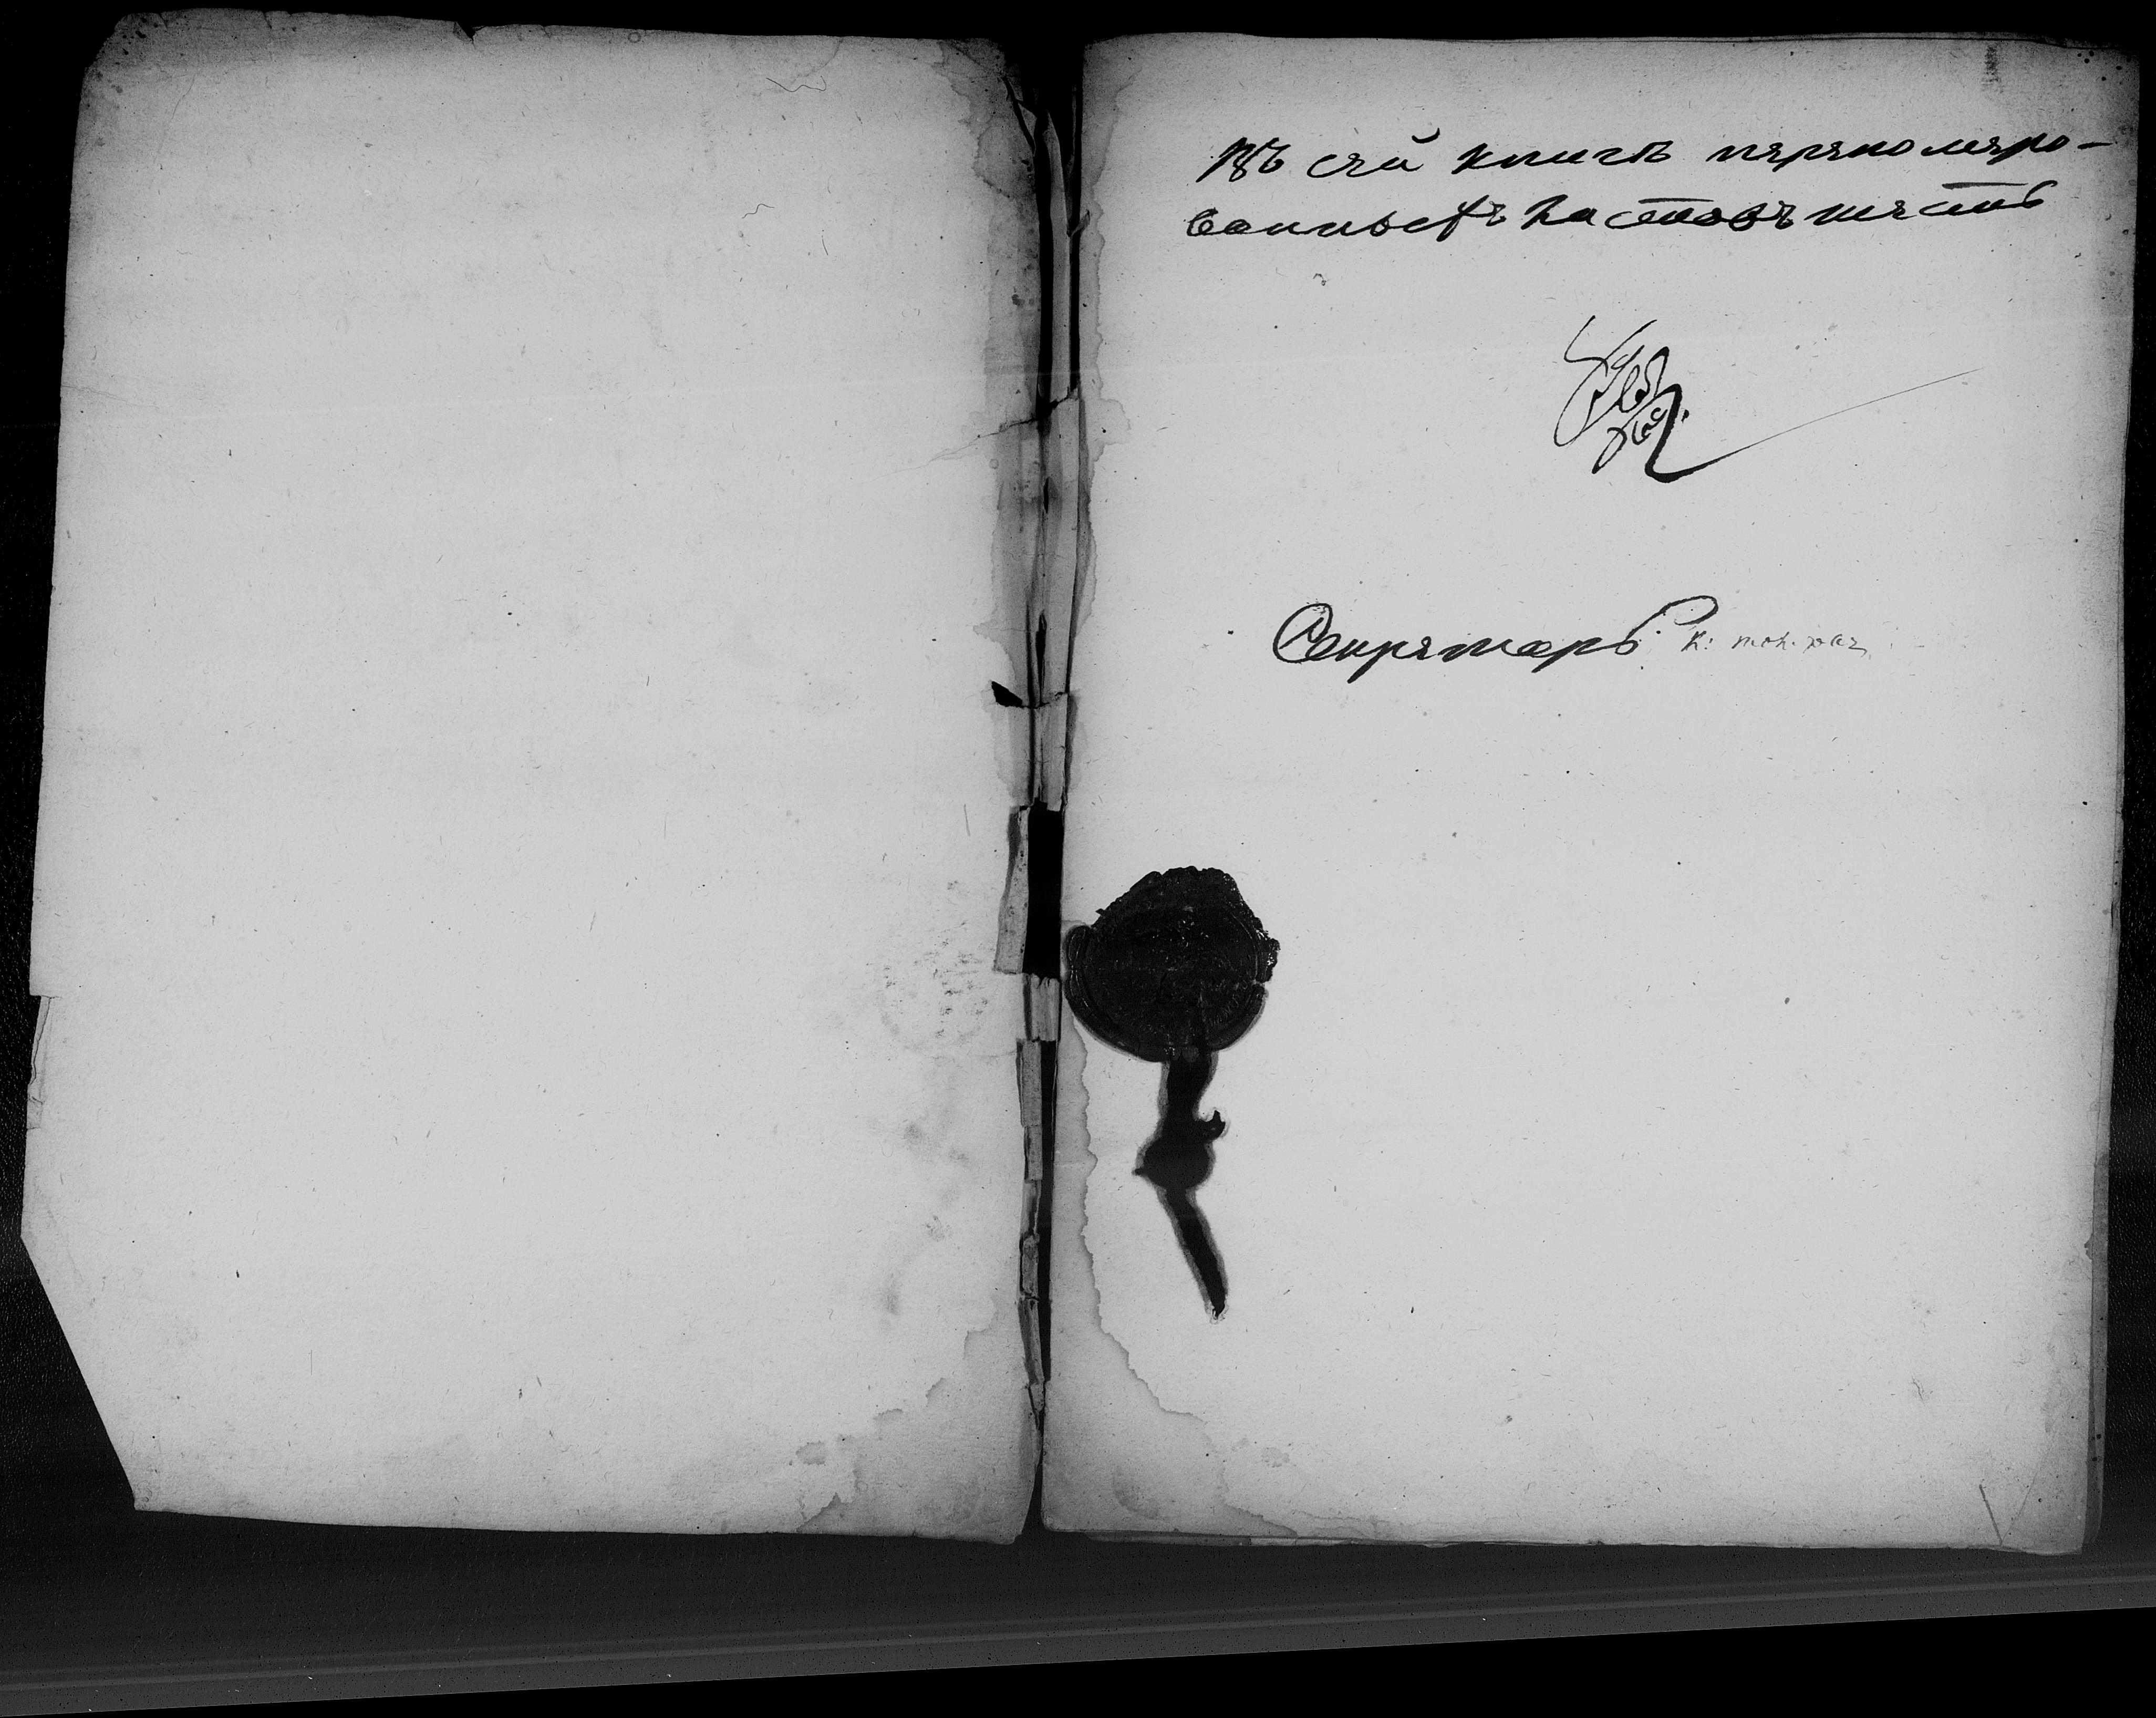 Въ сей книгѣ перенумеро-
ванныхъ листовъ шесть
Секретарь